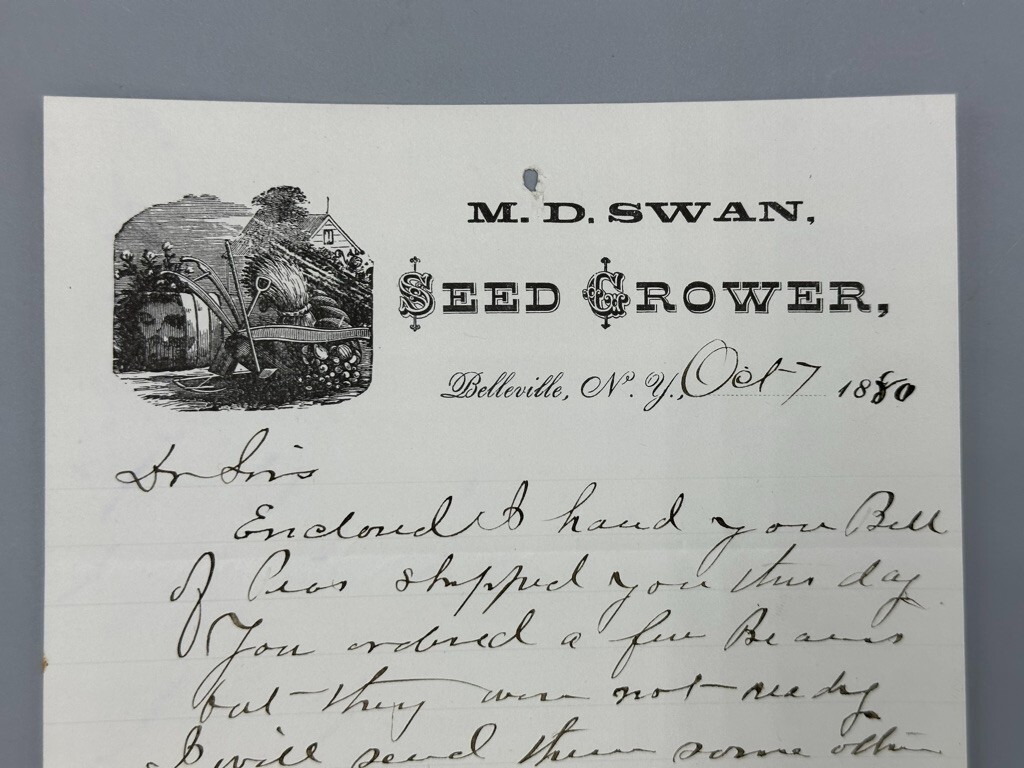 M. D. SWAN,
SEED GROWER,
Belleville, N. Y., Oct 7 1880
Dr Sirs
Enclosed I hand you Bill
of Peas shipped you this day
You ordered a few Beans
but they were not ready
I will send them some other